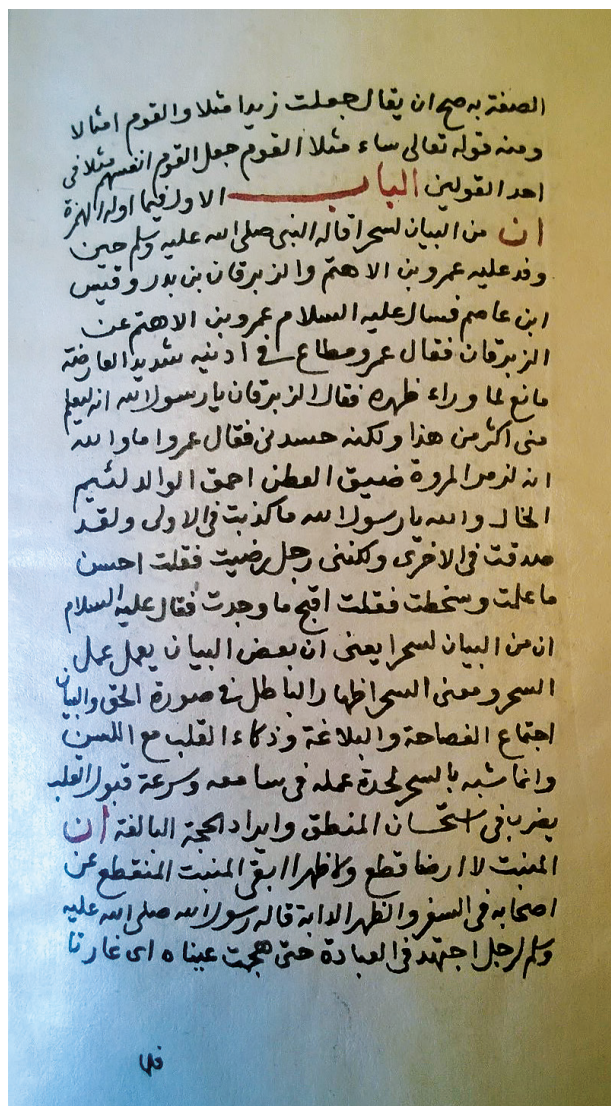 الصفة به صح ان يقال جعلت زيدا مثلا والقوم امثالا
ومنه قوله تعالى ساء مثلا القوم جعل القوم انفسهم مثلا في
احد القولين الباب الاول فيما اوله الهمزة
ان من البيان لسحرا قاله النبي صلى الله عليه وسلم حين
وفد عليه عمرو بن الاهتم والزبرقان بن بدر وقيس
ابن عاصم فسال عليه السلام عمرو بن الاهتم عن
الزبرقان فقال عمرو مطاع في ادنيه شديد العارضة
مانع لما وراء ظهره فقال الزبرقان يا رسول الله انه ليعلم
منى اكثر من هذا ولكنه حسدنى فقال عمروا ما والله
انه لزمر المروة ضيق العطن احمق الوالد لئيم
الخال والله يا رسول الله ما كذبت فى الاولى ولقد
صدقت فى الاخرى ولكننى رجل رضيت فقلت احسن
ما علمت وسخطت فقلت اقبح ما وجدت فقال عليه السلام
ان من البيان لسحرا يعنى ان بعض البيان يعمل عمل
السحر ومعنى السحر اظهار الباطل في صورة الحق والبيان
اجتماع الفصاحة والبلاغة وذكاء القلب مع اللسن
وانما شبه بالسحر لحدة عمله فى سامعه وسرعة قبول القلب
يضرب فى استحسان المنطق وايراد الحجة البالغة ان
المنبت لا ارضا قطع ولا ظهرا ابقى المنبت المنقطع عن
اصحابه فى السفر والظهر الدابة قاله رسول الله صلى الله عليه
وسلم لرجل اجتهد فى العبادة حتى هجمت عيناه اى غارتا
فلما